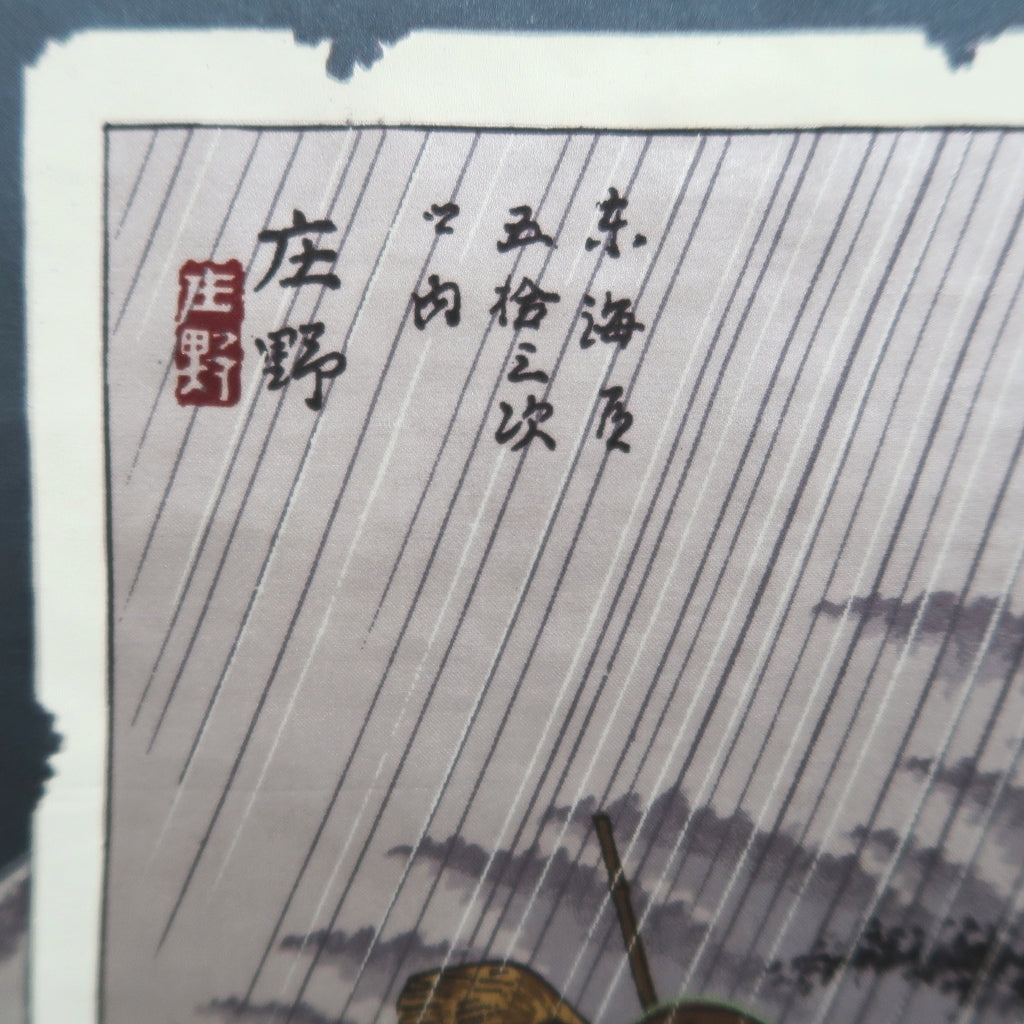 东海道
五拾三次
之内
庄野
庄野